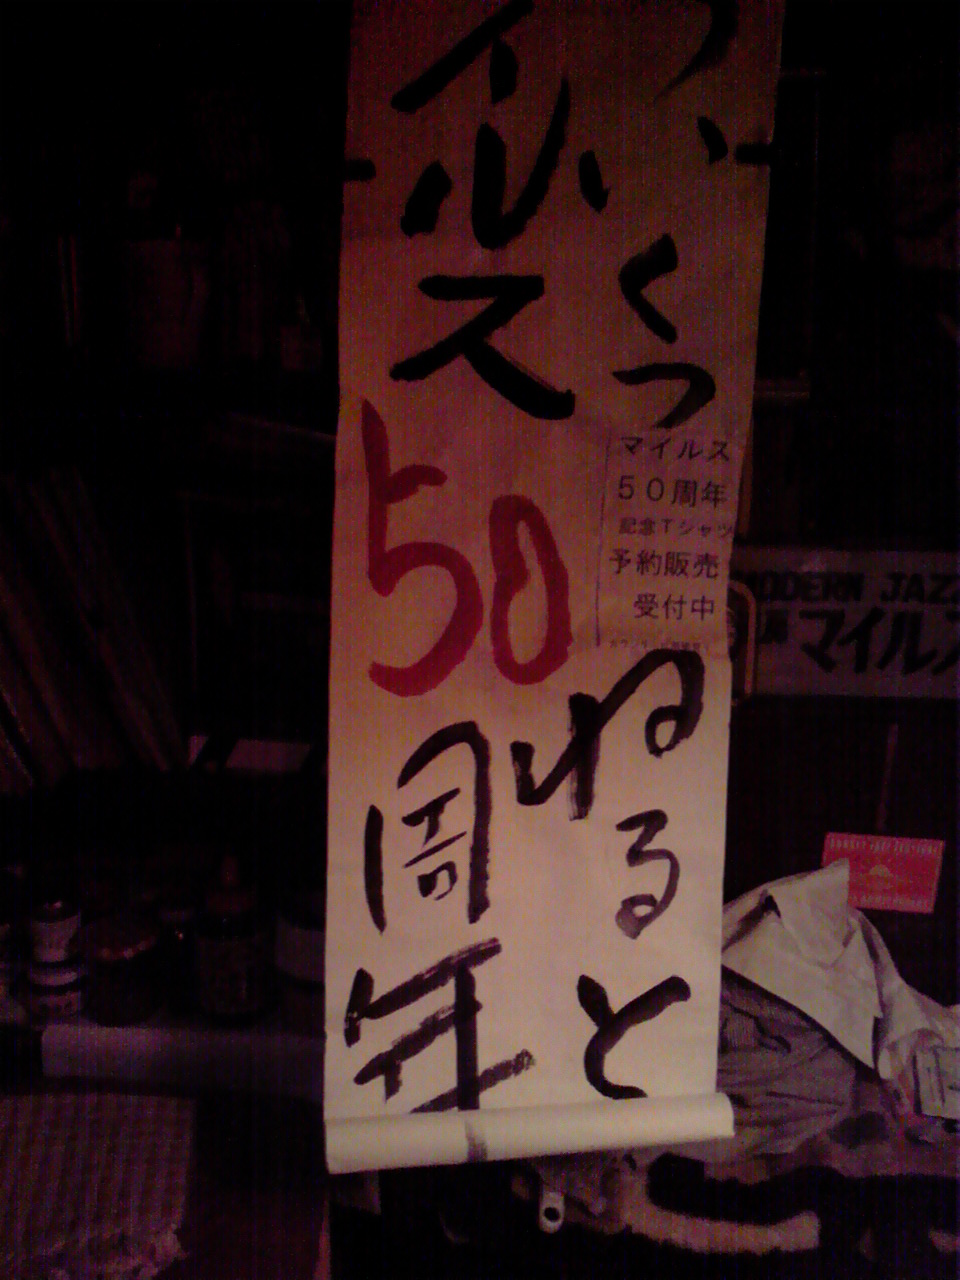 い
くつ
ねると
イルス
50
周年
マイルス
50周年
記念Tシャツ
予約販売
受付中
MODERN JAZZ
マイルス